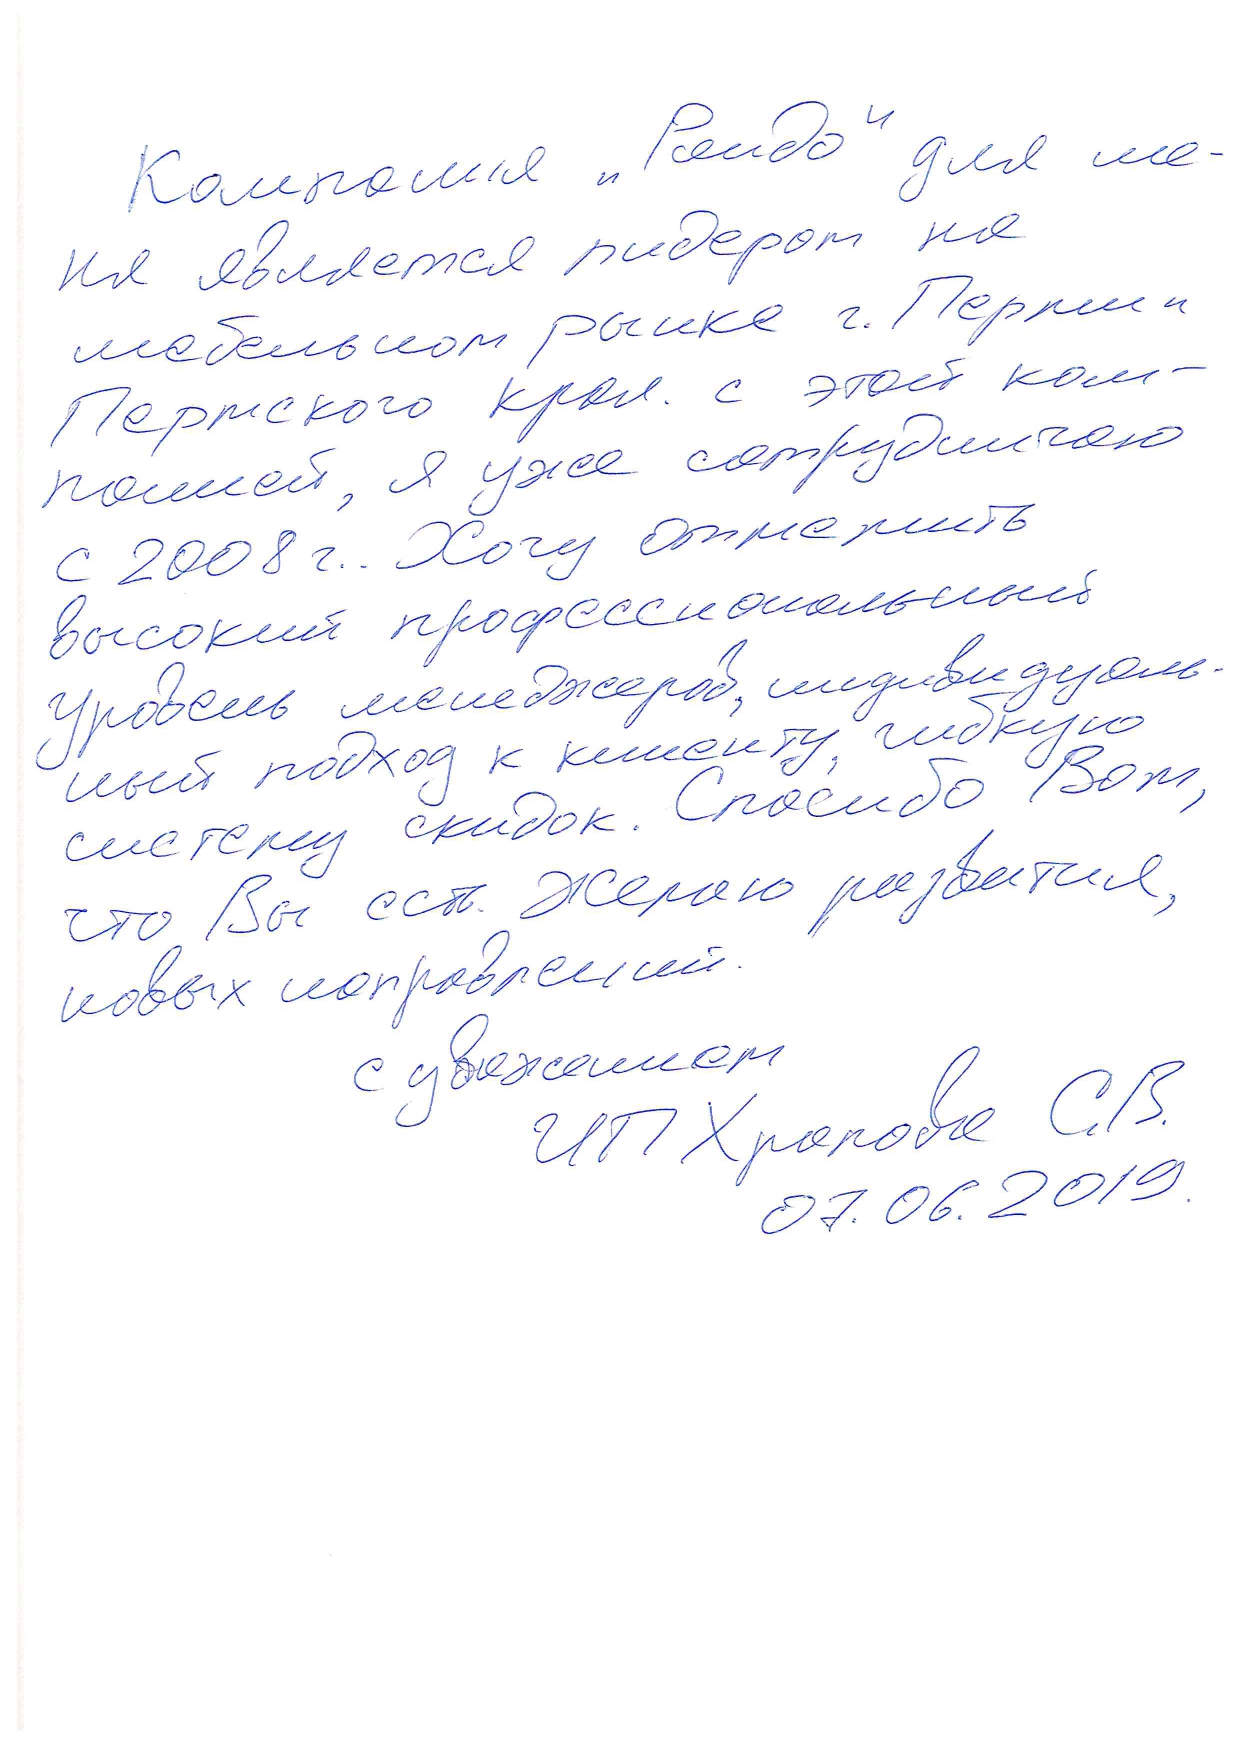 Компания „Раидо“ для ме-
ня является лидером на
мебельном рынке г. Перми и
Пермского края. с этой ком-
панией, я уже сотрудничаю
с 2008 г.. Хочу отметить
высокий профессиональный
уровень менеджеров, индивидуаль-
ный подход к клиенту, гибкую
систему скидок. Спасибо Вам,
что Вы есть. Желаю развития,
новых направлений.
с уважением
ИП Храпова С.В.
07.06.2019.